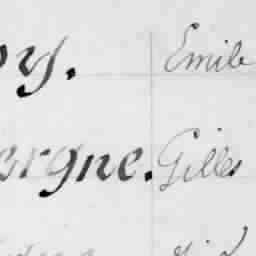 oy. Emile
ergne. Gilles